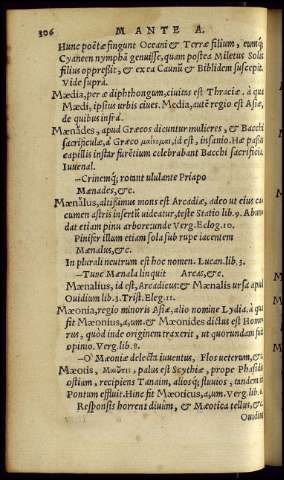 306 MANTE A.
Hunc poëtæ fingunt Oceani & Terræ filium, eumq́;
Cyaneen nympham genuisse, quam postea Miletus Solis
filius oppressit, & ex ea Caunū & Biblidem suscepit.
Vide suprà.
Mædia, per æ diphthongum, ciuitas est Thraciæ. à qua
Mædi, ipsius urbis ciues. Media, autē regio est Asiæ,
de quibus infrà.
Mænades, apud Græcos dicuntur mulieres, & Bacchi
sacrificulæ, à Græco μαίνομαι, id est, insanio. Hæ passis
capillis instar furētium celebrabant Bacchi sacrificia.
Iuuenal.
—Crinemq́; rotant ululante Priapo
Mænades, &c.
Mænalus, altissimus mons est Arcadiæ, adeo ut eius cacumen
astris insertū uideatur, teste Statio lib.9. Abundat
etiam pinu arbore, unde Verg. Eclog.10.
Pinifer illum etiam sola sub rupe iacentem
Mænalus, &c.
In plurali neutrum est hoc nomen. Lucan.lib.3.
—Tunc Mænala linquit Arcas, &c.
Mænalius, id est, Arcadicus: & Mænalis ursa apud
Ouidium lib.3. Trist. Eleg.11.
Mæonia, regio minoris Asiæ, alio nomine Lydia. à qua
fit Mæonius, a, um. & Mæonides dictus est Homerus,
quòd inde originem traxerit, ut quorundam fuit
opinio. Verg. lib.8.
—O Mæoniæ delecta iuuentus, Flos ueterum, &c.
Mæotis, palus est Scythiæ, prope Phasidis
ostiam, recipiens Tanaim, aliosq́; fluuios, tandem in
Pontum effluit. Hinc fit Mæoticus, a, um. Verg.lib.6.
Responsis horrent diuûm, & Mæotica tellus, &c.
Ouidius